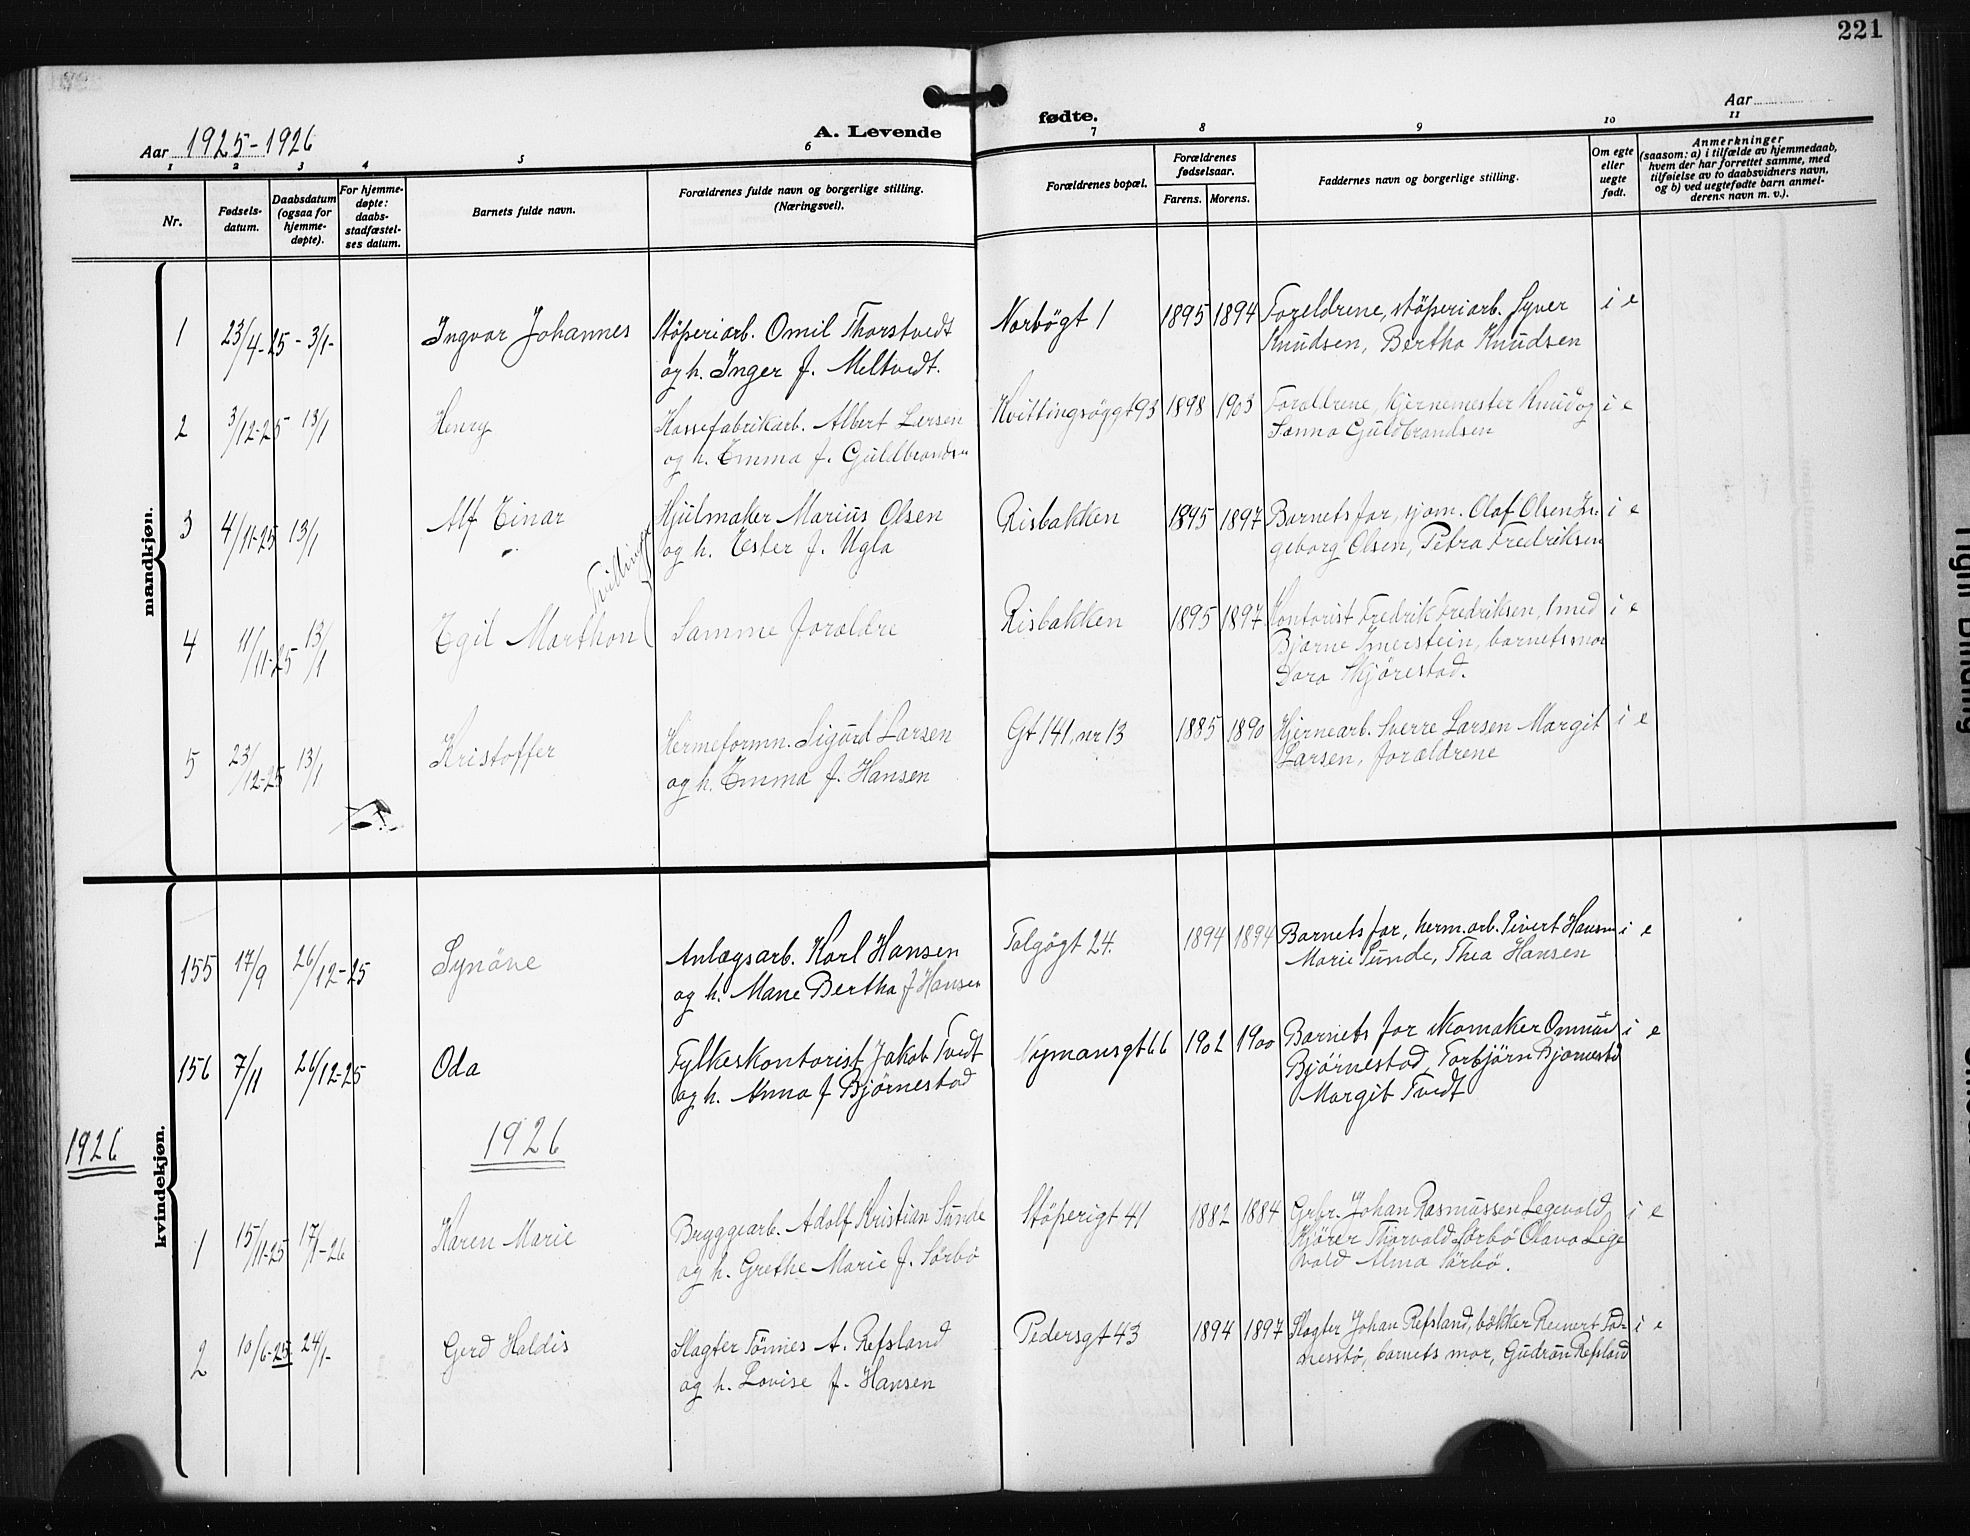 221
Aar 1925-1926
A. Levende
fødte.
Aar
1 2 3 4 5 6
7 8 9 10 11
Nr.
Fødsels-
datum.
Daabsdatum
(ogsaa for
hjemme-
døpte).
For hjemme-
døpte:
daabs-
stadfæstel-
ses datum.
Barnets fulde navn.
Forældrenes fulde navn og borgerlige stilling.
(Næringsvei).
Forældrenes bopæl.
Forældrenes
fødselsaar.
Farens. Morens.
Faddernes navn og borgerlige stilling.
Om egte
eller
uegte
født.
Anmerkninger
(saasom: a) i tilfælde av hjemmedaab,
hvem der har forrettet samme, med
tilføielse av to daabsvidners navn,
og b) ved uegtefødte barn anmel-
derens navn m. v.).
mandkjøn.
1 23/4-25 - 3/1- Ingvar Johannes
Støperiarb. Omil Thorstvedt
og h. Inger f. Meltvedt.
Norbögt 1 1895 1894
Foreldrene, støperiarb. Syver
Knudsen, Bertha Knudsen
i e
2 3/12-25 13/1 Henry
Kassefabrikarb. Albert Larsen
og h. Emma f. Guldbrandsn
Kvittingsøggt 93 1898 1903
Forældrene, hjernemester Knud og
Sanna Guldbrandsen
i e
3 4/11-25 13/1 Alf Einar
Hjulmaker Marius Olsen
og h. Ester f. Ugla
Risbakken 1895 1897
Barnets far, sjøm. Olaf Olsen In-
geborg Olsen, Petra Fredriksen
i e
Tvillinger
4 11/11-25 13/1 Egil Marthon
Samme forældre
Risbakken 1895 1897
Kontorist Fredrik Fredriksen,
Bjarne Imerstein, barnets mor
Dora Skjørestad.
i e
5 23/12-25 13/1 Kristoffer
Hermeformn. Sigurd Larsen
og h. Emma f. Hansen
Gt 141, nr 13 1885 1890
Hjernearb. Sverre Larsen Margit
Larsen, forældrene
i e
kvindekjøn.
155 17/9 26/12-25 Synöve
Anlægsarb. Karl Hansen
og h. Mane Bertha f Hansen
Tolgøgt 24. 1894 1894
Barnets far, herm.arb. Sivert Hansen
Marie Sunde, Thea Hansen
i e
156 7/11 26/12-25 Oda
Fylkeskontorist Jakob Tvedt
og h. Anna f Bjørnestad
Nymansgt 66 1902 1900
Barnets far skomaker Ommund
Bjørnestad, Torbjörn Bjørnestd
Margit Tvedt
i e
1926
1926
1 15/11-25 17/1-26 Karen Marie
Bryggearb. Adolf Kristian Sunde
og h. Grethe Marie f. Sørbö
Støperigt 41 1882 1884
Grbr. Johan Rasmussen Legevold
Kjörer Thorvald Sørbö Olava Lege
vold Alma Sørbö.
i e
2 10/6-25 24/1- Gerd Haldis
Slagter Tönnes A. Refsland
og h. Lovise f. Hansen
Pedersgt 43 1894 1897
Slagter Johan Refsland, bökker Reinert Tod-
nesstø, barnets mor, Gudrun Refsland
i e